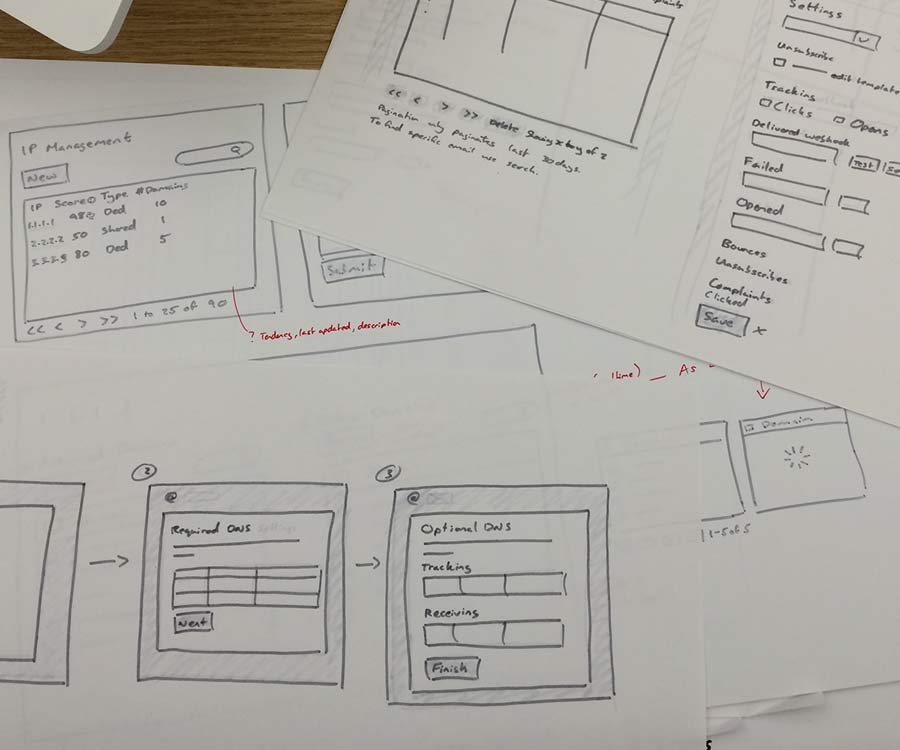 IP Management
New
IP Score Type #Domains
1.1.1.1 98% Ded 10
2.2.2.2 50 Shared 1
80 Ded 5
<< < > >> 1 to 25 of 90
? Tendency, last updated, description
Submit
<< < > >> Delete
Pagination only paginates last 30 days.
To find specific email use search.
Settings
Unsubscribe
edit template
Tracking
Clicks Opens
Delivered webhook
Test
Failed
Opened
Bounces
Unsubscribes
Complaints
Clicked
Save x
As
Domain
1-5 of 5
2
Required DNS Settings
Next
3
Optional DNS
Tracking
Receiving
Finish